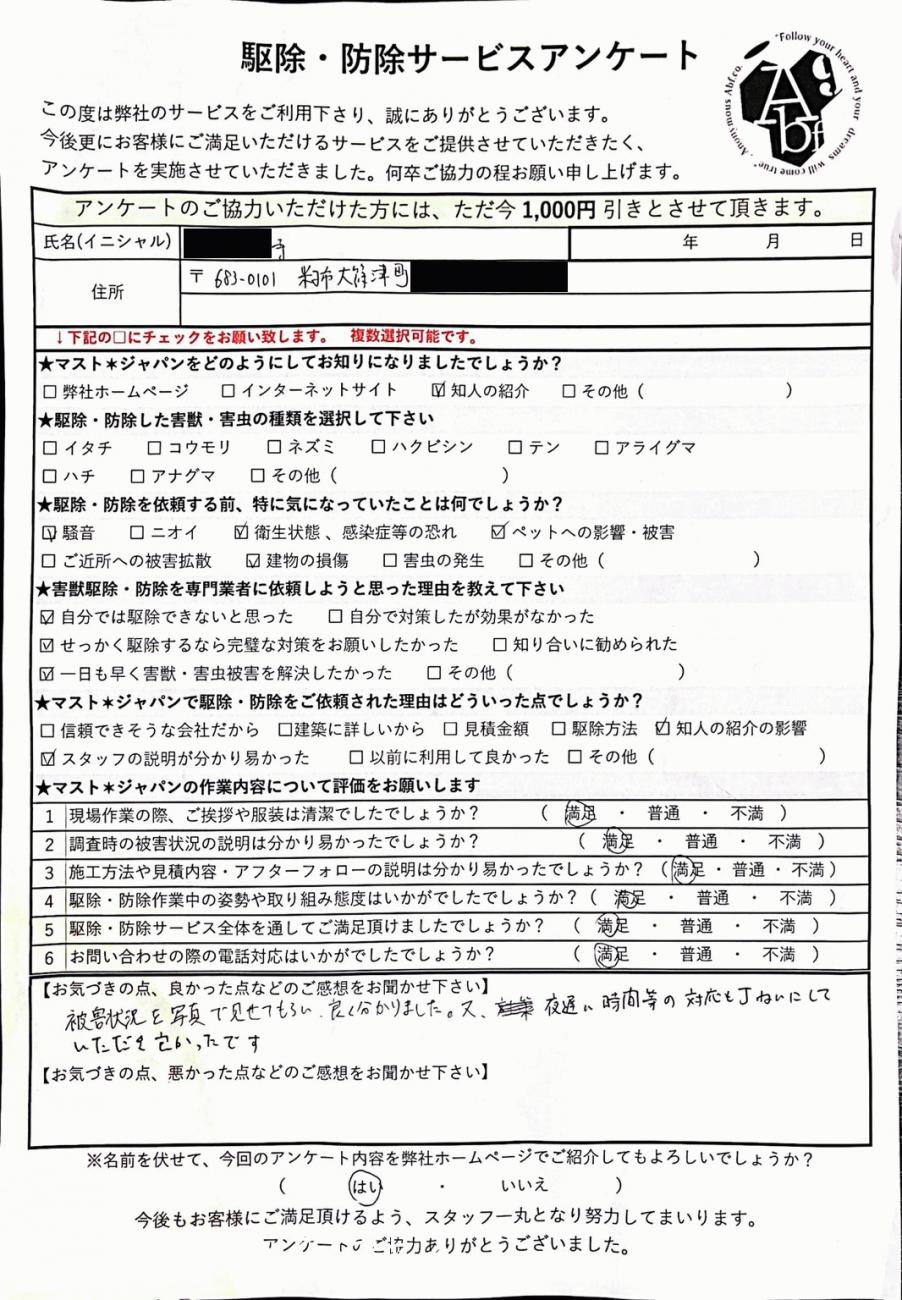 駆除・防除サービスアンケート
"Follow your heart and your dreams will come true". Anonymous Abf.co.
Ag
bf
この度は弊社のサービスをご利用下さり、誠にありがとうございます。
今後更にお客様にご満足いただけるサービスをご提供させていただきたく、
アンケートを実施させていただきました。何卒ご協力の程お願い申し上げます。
アンケートのご協力いただけた方には、ただ今1,000円引きとさせて頂きます。
氏名(イニシャル) 年 月 日
住所 〒 683-0101 米子市大篠津町
↓下記の□にチェックをお願い致します。 複数選択可能です。
★マスト＊ジャパンをどのようにしてお知りになりましたでしょうか?
□弊社ホームページ □インターネットサイト ☑知人の紹介 □その他 ( )
★駆除・防除した害獣・害虫の種類を選択して下さい
□イタチ □コウモリ □ネズミ □ハクビシン □テン □アライグマ
□ハチ □アナグマ □その他 ( )
★駆除・防除を依頼する前、特に気になっていたことは何でしょうか?
☑騒音 □ニオイ ☑衛生状態、感染症等の恐れ ☑ペットへの影響・被害
□ご近所への被害拡散 ☑建物の損傷 □害虫の発生 □その他 ( )
★害獣駆除・防除を専門業者に依頼しようと思った理由を教えて下さい
☑自分では駆除できないと思った □自分で対策したが効果がなかった
☑せっかく駆除するなら完璧な対策をお願いしたかった □知り合いに勧められた
☑一日も早く害獣・害虫被害を解決したかった □その他 ( )
★マスト＊ジャパンで駆除・防除をご依頼された理由はどういった点でしょうか?
□信頼できそうな会社だから □建築に詳しいから □見積金額 □駆除方法 ☑知人の紹介の影響
☑スタッフの説明が分かり易かった □以前に利用して良かった □その他 ( )
★マスト＊ジャパンの作業内容について評価をお願いします
1 現場作業の際、ご挨拶や服装は清潔でしたでしょうか? ( 満足 ・ 普通 ・ 不満 )
2 調査時の被害状況の説明は分かり易かったでしょうか? ( 満足 ・ 普通 ・ 不満 )
3 施工方法や見積内容・アフターフォローの説明は分かり易かったでしょうか? ( 満足・普通・不満 )
4 駆除・防除作業中の姿勢や取り組み態度はいかがでしたでしょうか? ( 満足 ・ 普通 ・ 不満 )
5 駆除・防除サービス全体を通してご満足頂けましたでしょうか? ( 満足 ・ 普通 ・ 不満 )
6 お問い合わせの際の電話対応はいかがでしたでしょうか? ( 満足 ・ 普通 ・ 不満 )
【お気づきの点、良かった点などのご感想をお聞かせ下さい】
被害状況を写真で見せてもらい、良く分かりました。又、夜遅い時間等の対応も丁ねいにして
いただき良かったです
【お気づきの点、悪かった点などのご感想をお聞かせ下さい】
※名前を伏せて、今回のアンケート内容を弊社ホームページでご紹介してもよろしいでしょうか?
( はい ・ いいえ )
今後もお客様にご満足頂けるよう、スタッフ一丸となり努力してまいります。
アンケートのご協力ありがとうございました。